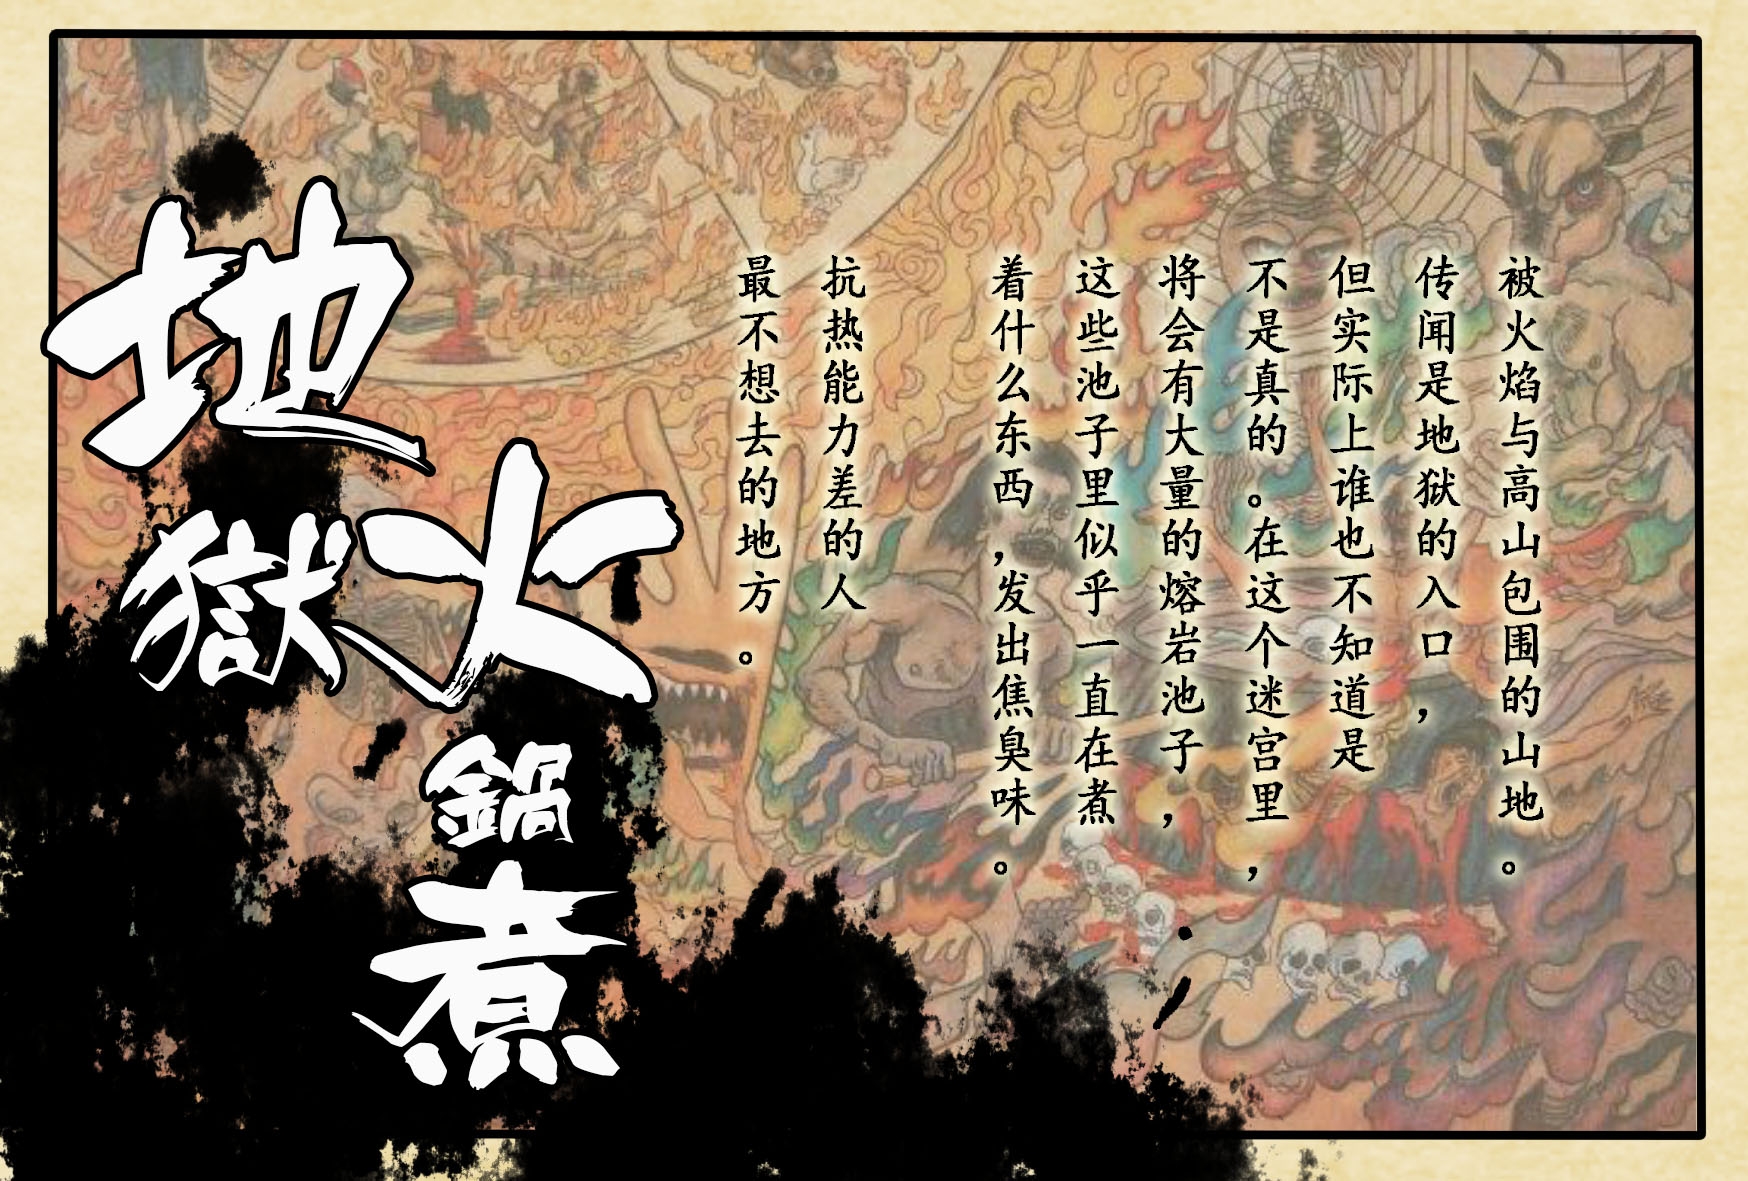 被火焰与高山包围的山地。
传闻是地狱的入口，
但实际上谁也不知道是
不是真的。在这个迷宫里，
将会有大量的熔岩池子，
这些池子里似乎一直在煮
着什么东西，发出焦臭味。
抗热能力差的人
最不想去的地方。
地獄
火鍋煮